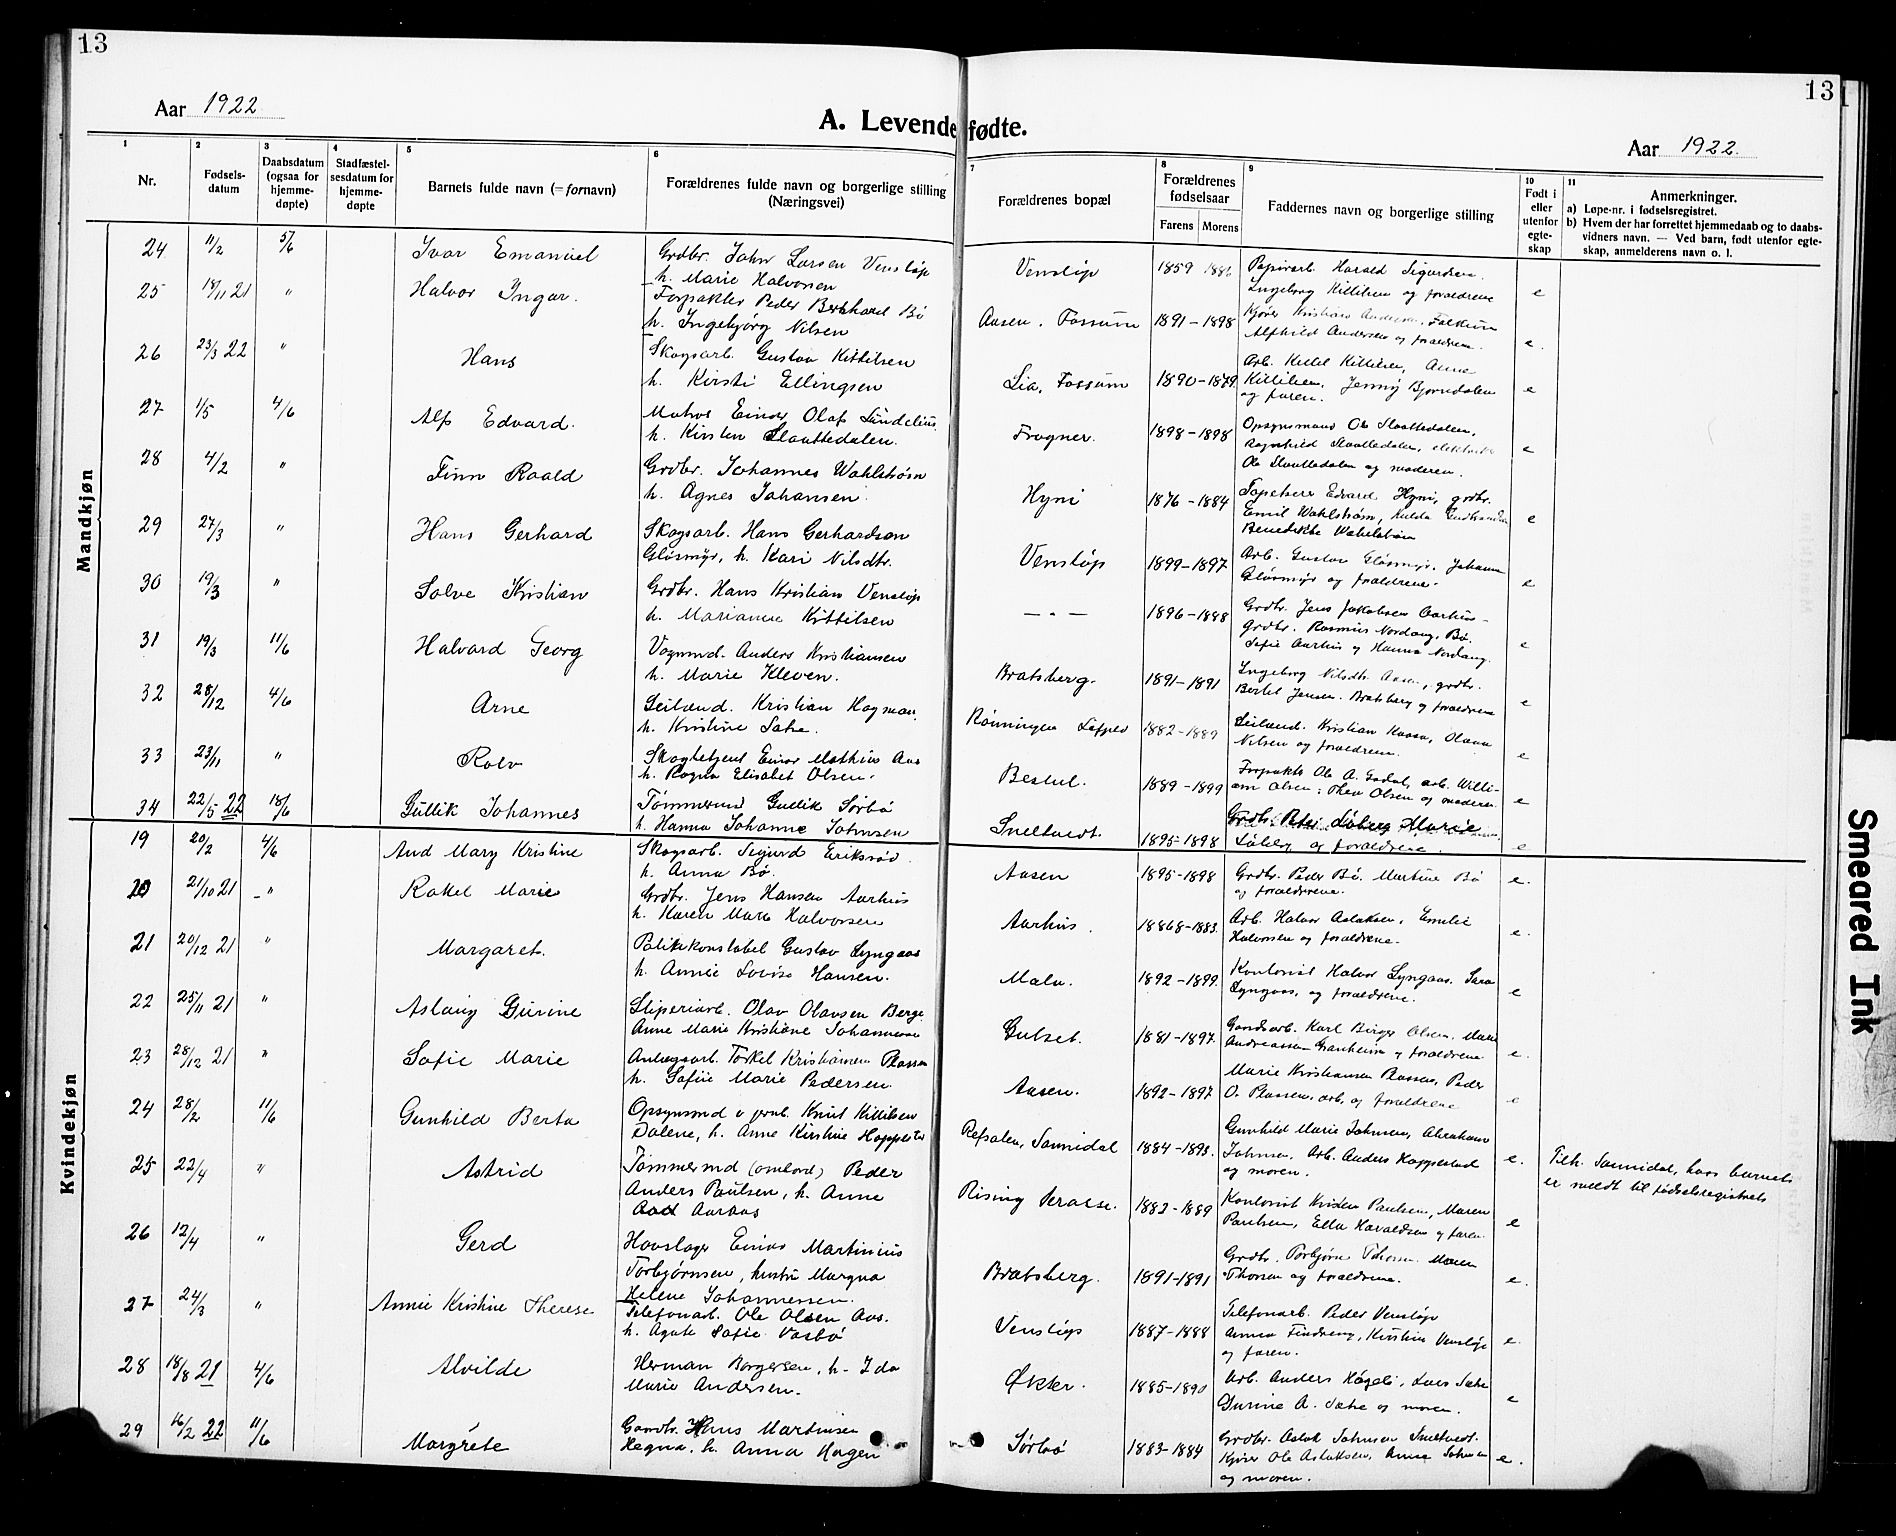 13
Aar 1922
A. Levendefødte.
13
Aar 1922.
1 Nr.
2 Fødselsdatum
3 Daabsdatum (ogsaa for hjemmedøpte)
4 Stadfæstelsesdatum for hjemmedøpte
5 Barnets fulde navn (=fornavn)
6 Forældrenes fulde navn og borgerlige stilling (Næringsvei)
7 Forældrenes bopæl
8 Forældrenes fødselsaar Farens Morens
9 Faddernes navn og borgerlige stilling
10 Født i eller utenfor egteskap
11 Anmerkninger.
a) Løpe-nr. i fødselsregistret.
b) Hvem der har forrettet hjemmedaab og to daabsvidners navn. — Ved barn, født utenfor egteskap, anmelderens navn o. l.
Mandkjøn
24 11/2 5/6 Ivar Emanuel Grdbr. John Larsen Venstøp h. Marie Halvorsen Venstøp 1859 1886 Papirarb. Harald Sigurdsen. Ingeborg Kittilsen og forældrene e
25 18/11 21 " Halvor Ingar. Forpakter Peder Bernhard Bø h. Ingebjørg Nilsen Aasen, Fossum 1891-1898 Kjører Kristian Andersen, Falkum Alfhild Andersen og forældrene. e.
26 23/3 22 " Hans Skogsarb. Gustav Kittilsen h. Kirsti Ellingsen Lia, Fossum 1890-1879 Arb. Kittel Kittilsen, Anne Kittilsen, Jenny Bjørndalen og faren. e
27 1/5 4/6 Alf Edvard. Matros Einar Olaf Lindelius. h. Kirsten Slaattedalen. Frogner. 1898-1898 Opsynsmand Ole Slaattedalen, Ragnhild Slaattedalen, Ole Slaattedalen og moderen. e
28 4/2 " Finn Roald Grdbr. Johannes Wahlstrøm h. Agnes Johansen. Hyni 1876-1884 Tapetserer Edvard Hyni, grdbr. Emil Wahlstrøm, Hulda Benedikte Wahlstrøm e
29 27/3 " Hans Gerhard Skogsarb. Hans Gerhardson Gløsmyr, h. Kari Nilsdtr. Venstøp 1899-1897 Arb. Gustav Gløsmyr, Johanne Gløsmyr og forældrene. e
30 19/3 " Solve Kristian Grdbr. Hans Kristian Venstøp h. Marianne Kittilsen — " — 1896-1888 Grdbr. Jens Jakobsen Aarhus - Grdbr. Rasmus Nordang, Bø. Sofie Aarhus og Hanna Nordang. e
31 19/3 11/6 Halvard Georg Vognmd. Anders Kristiansen h. Marie Kleven. Bratsberg. 1891-1891 Ingeborg Nilsdtr. Aasen, grdbr. Bertel Jensen. Bratsberg og forældrene e
32 28/12 4/6 Arne Leilænd. Kristian Hogman. h. Kristine Satre. Rønningen Løfald 1882-1889 Leilænd. Kristian Kaasa, Olava Nilsen og forældrene. e
33 23/11 " Rolv Skogbetjent Einar Mathias Aas h. Ragna Elisabet Olsen. Bestul. 1889-1899 Forpakter Ole A. Godal, arb. William Olsen, Thea Olsen og moderen. e
34 22/5 22 18/6 Gullik Johannes Tømmermd Gullik Sørbø h. Hanna Johanne Johnsen Sneltvedt. 1895-1898 Grdbr. Peder Løberg Marie Løberg og forældrene. e
Kvindekjøn
19 20/2 4/6 Aud Mary Kristine Skogsarb. Sigurd Eriksrød. h. Anna Bø. Aasen 1895-1898 Grdbr. Peder Bø. Martine Bø og forældrene. e.
20 21/10 21 " Rakel Marie Grdbr. Jens Hansen Aarhus h. Karen Marie Halvorsen Aarhus. 18868-1883. Arb. Halvor Aslaksen, Emelie Halvorsen og forældrene. e.
21 20/12 21 " Margaret. Politikonstabel Gustav Lyngaas h. Annie Lovise Hansen. Mæla. 1892-1899. Kontorist Halvor Lyngaas. Sara Lyngaas, og forældrene. e
22 25/11 21 " Aslaug Gurine Sliperiarb. Olav Olavsen Berge. Anne Marie Kristiane Johannessen Gulset. 1881-1897. Gaardsarb. Karl Birger Olsen. Marie Andreassen Granheim og forældrene e.
23 28/12 21 " Sofie Marie Anlægsarb. Torkel Kristiansen Plassen h. Sofiie Marie Pedersen. Aasen. 1892-1897 Marie Kristiansen Plassen, Peder O. Plassen, arb. og forældrene e
24 28/2 11/6 Gunhild Berta Opsynsmd v jernb. Knut Kittilsen Dalene, h. Anne Kirstine Hoppestad Refsalen, Sannidal 1884-1893. Gunhild Marie Johnsen, Abraham Johnsen, Arb. Anders Hoppestad og moren. e. Tilh. Sannidal, hvor barnets er meldt til fødselsregistret
25 22/4 " Astrid Tømmermd (ombord) Peder Anders Paulsen, h. Anne Aaraas Rising terasse. 1882-1889 Kontorist Kristen Paulsen, Maren Paulsen, Ella Haraldsen og faren. e
26 12/4 " Gerd Hovslager Einar Martinius Torbjørnsen, hustru Margna Helene Johannessen. Bratsberg. 1891-1891 Grdbr. Torbjørn Thorsen Maren Thorsen og forældrene. e.
27 24/3 " Annie Kristine Therese Telefonarb. Ole Olsen Aas. h. Agate Sofie Vasbø Venstøp 1887-1888 Telefonarb. Peder Venstøp Anna Findreng, Kirstine Venstøp og faren. e.
28 18/8 21 4/6 Alvilde Herman Borgersen, h. Ida Marie Andersen. Økter. 1885-1890 Arb. Anders Høgeli, Lars Sætre Gurine A. Sætre og moren. e
29 16/2 22 11/6 Margrete Gaardbr. Hans Martinsen Hegna, h. Anna Hagen Sørbø 1883-1884 Grdbr. Aslak Johnsen Sneltvedt. Kjører Ole Aslaksen, Anne Johnsen og moren. e.
Smeared Ink